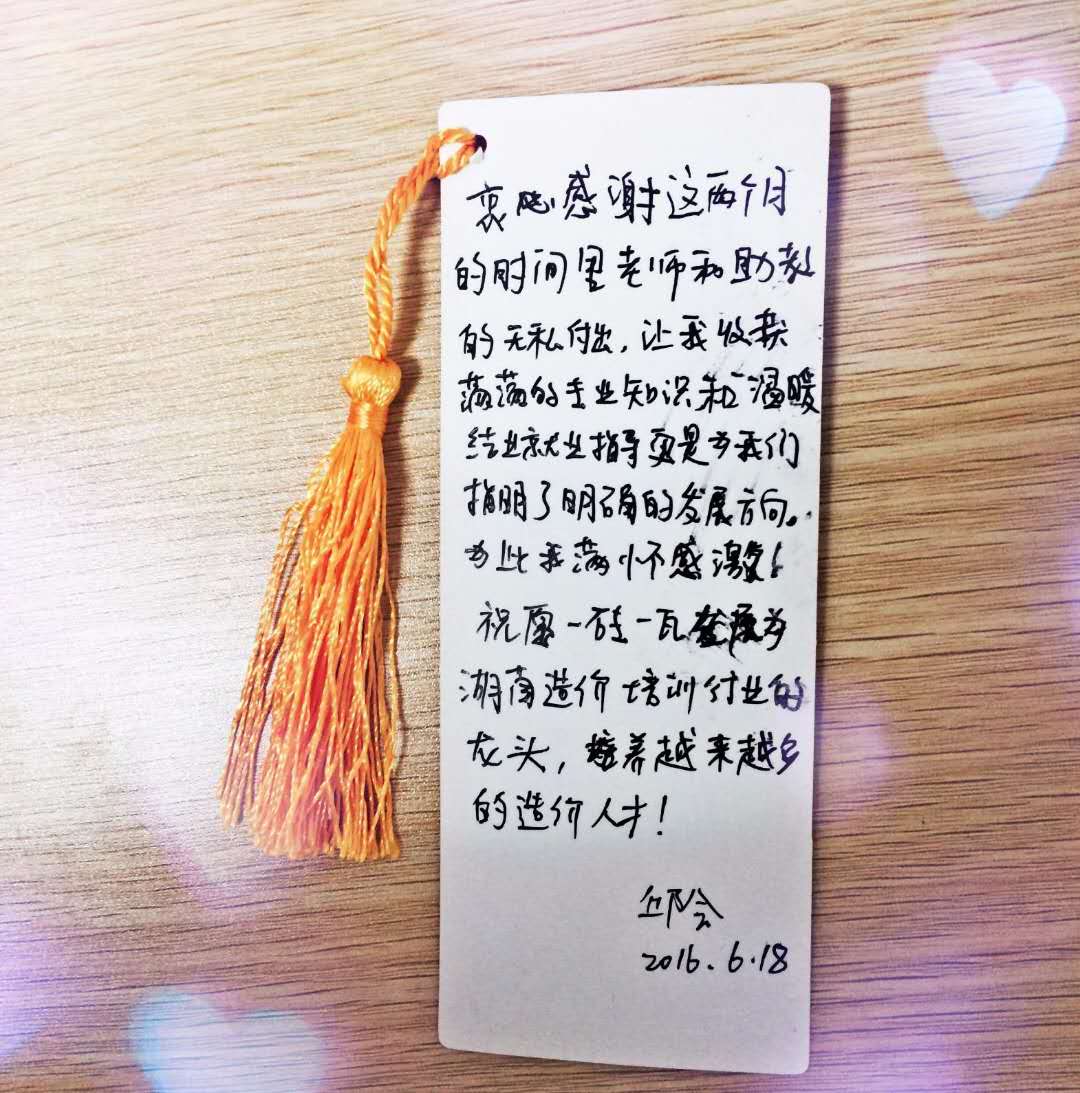 衷心感谢这两个月
的时间里老师和助教
的无私付出，让我收获
满满的专业知识和温暖
结业就业指导更是为我们
指明了明确的发展方向。
为此我满怀感激！
祝愿一砖一瓦发展为
湖南造价培训行业的
龙头，培养越来越多
的造价人才！
邱会
2016.6.18